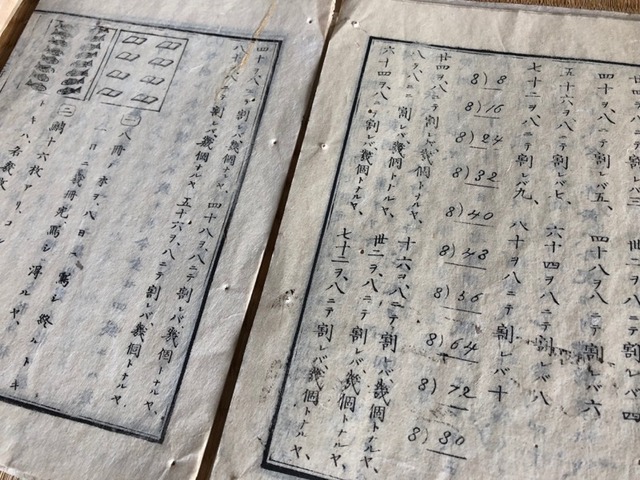 四十ヲ八ニテ割レバ五、四十八ヲ八ニテ割レバ六
五十六ヲ八ニテ割レバ七、六十四ヲ八ニテ割レバ八
七十二ヲ八ニテ割レバ九、八十ヲ八ニテ割レバ十
8)8
8)16
8)24
8)32
8)40
8)48
8)56
8)64
8)72
8)80
八ヲ、八ニテ割レバ、幾個トナルヤ、十六ヲ、八ニテ割レバ、幾個トナルヤ、
廿四ヲ、八ニテ割レバ、幾個トナルヤ、卅二ヲ、八ニテ割レバ、幾個トナルヤ、
六十四ヲ、八ニテ割レバ、幾個トナルヤ、七十二ヲ、八ニテ割レバ、幾個トナルヤ、
四十ヲ、八ニテ割レバ、幾個トナルヤ、四十八ヲ、八ニテ割レバ、幾個トナルヤ、
八十ヲ、八ニテ割レバ、幾個トナルヤ、五十六ヲ、八ニテ割レバ、幾個トナルヤ、
(一)八冊ノ本ヲ八日ニ寫シ終ルトキ
一日ニ幾冊充寫シ得ルヤ、
(二)鯛十六枚アリ、コレ
トキハ、各幾枚